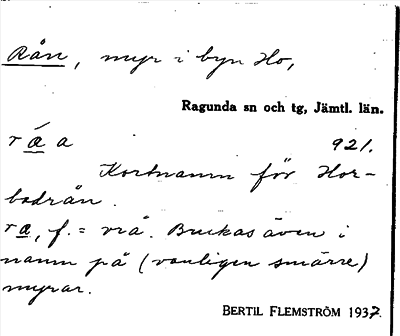 Rån, myr i byn Ho,
Ragunda sn och tg, Jämtl. län.
rá̲ a 921.
Kortnamn för Hor-
bodrån.
ra̲, f. = vrå. Brukas även i
namn på (vanligen smärre)
myrar.
BERTIL FLEMSTRÖM 1937.